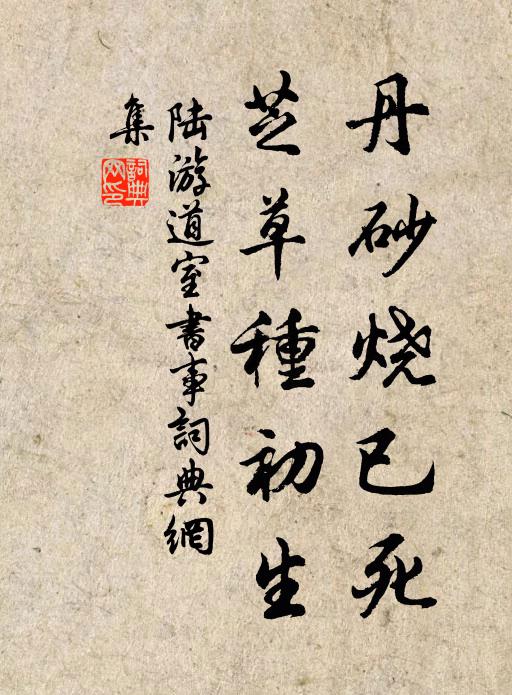 丹砂烧已死
芝草種初生
陆游道室書事詞典網
集
詞典
网印